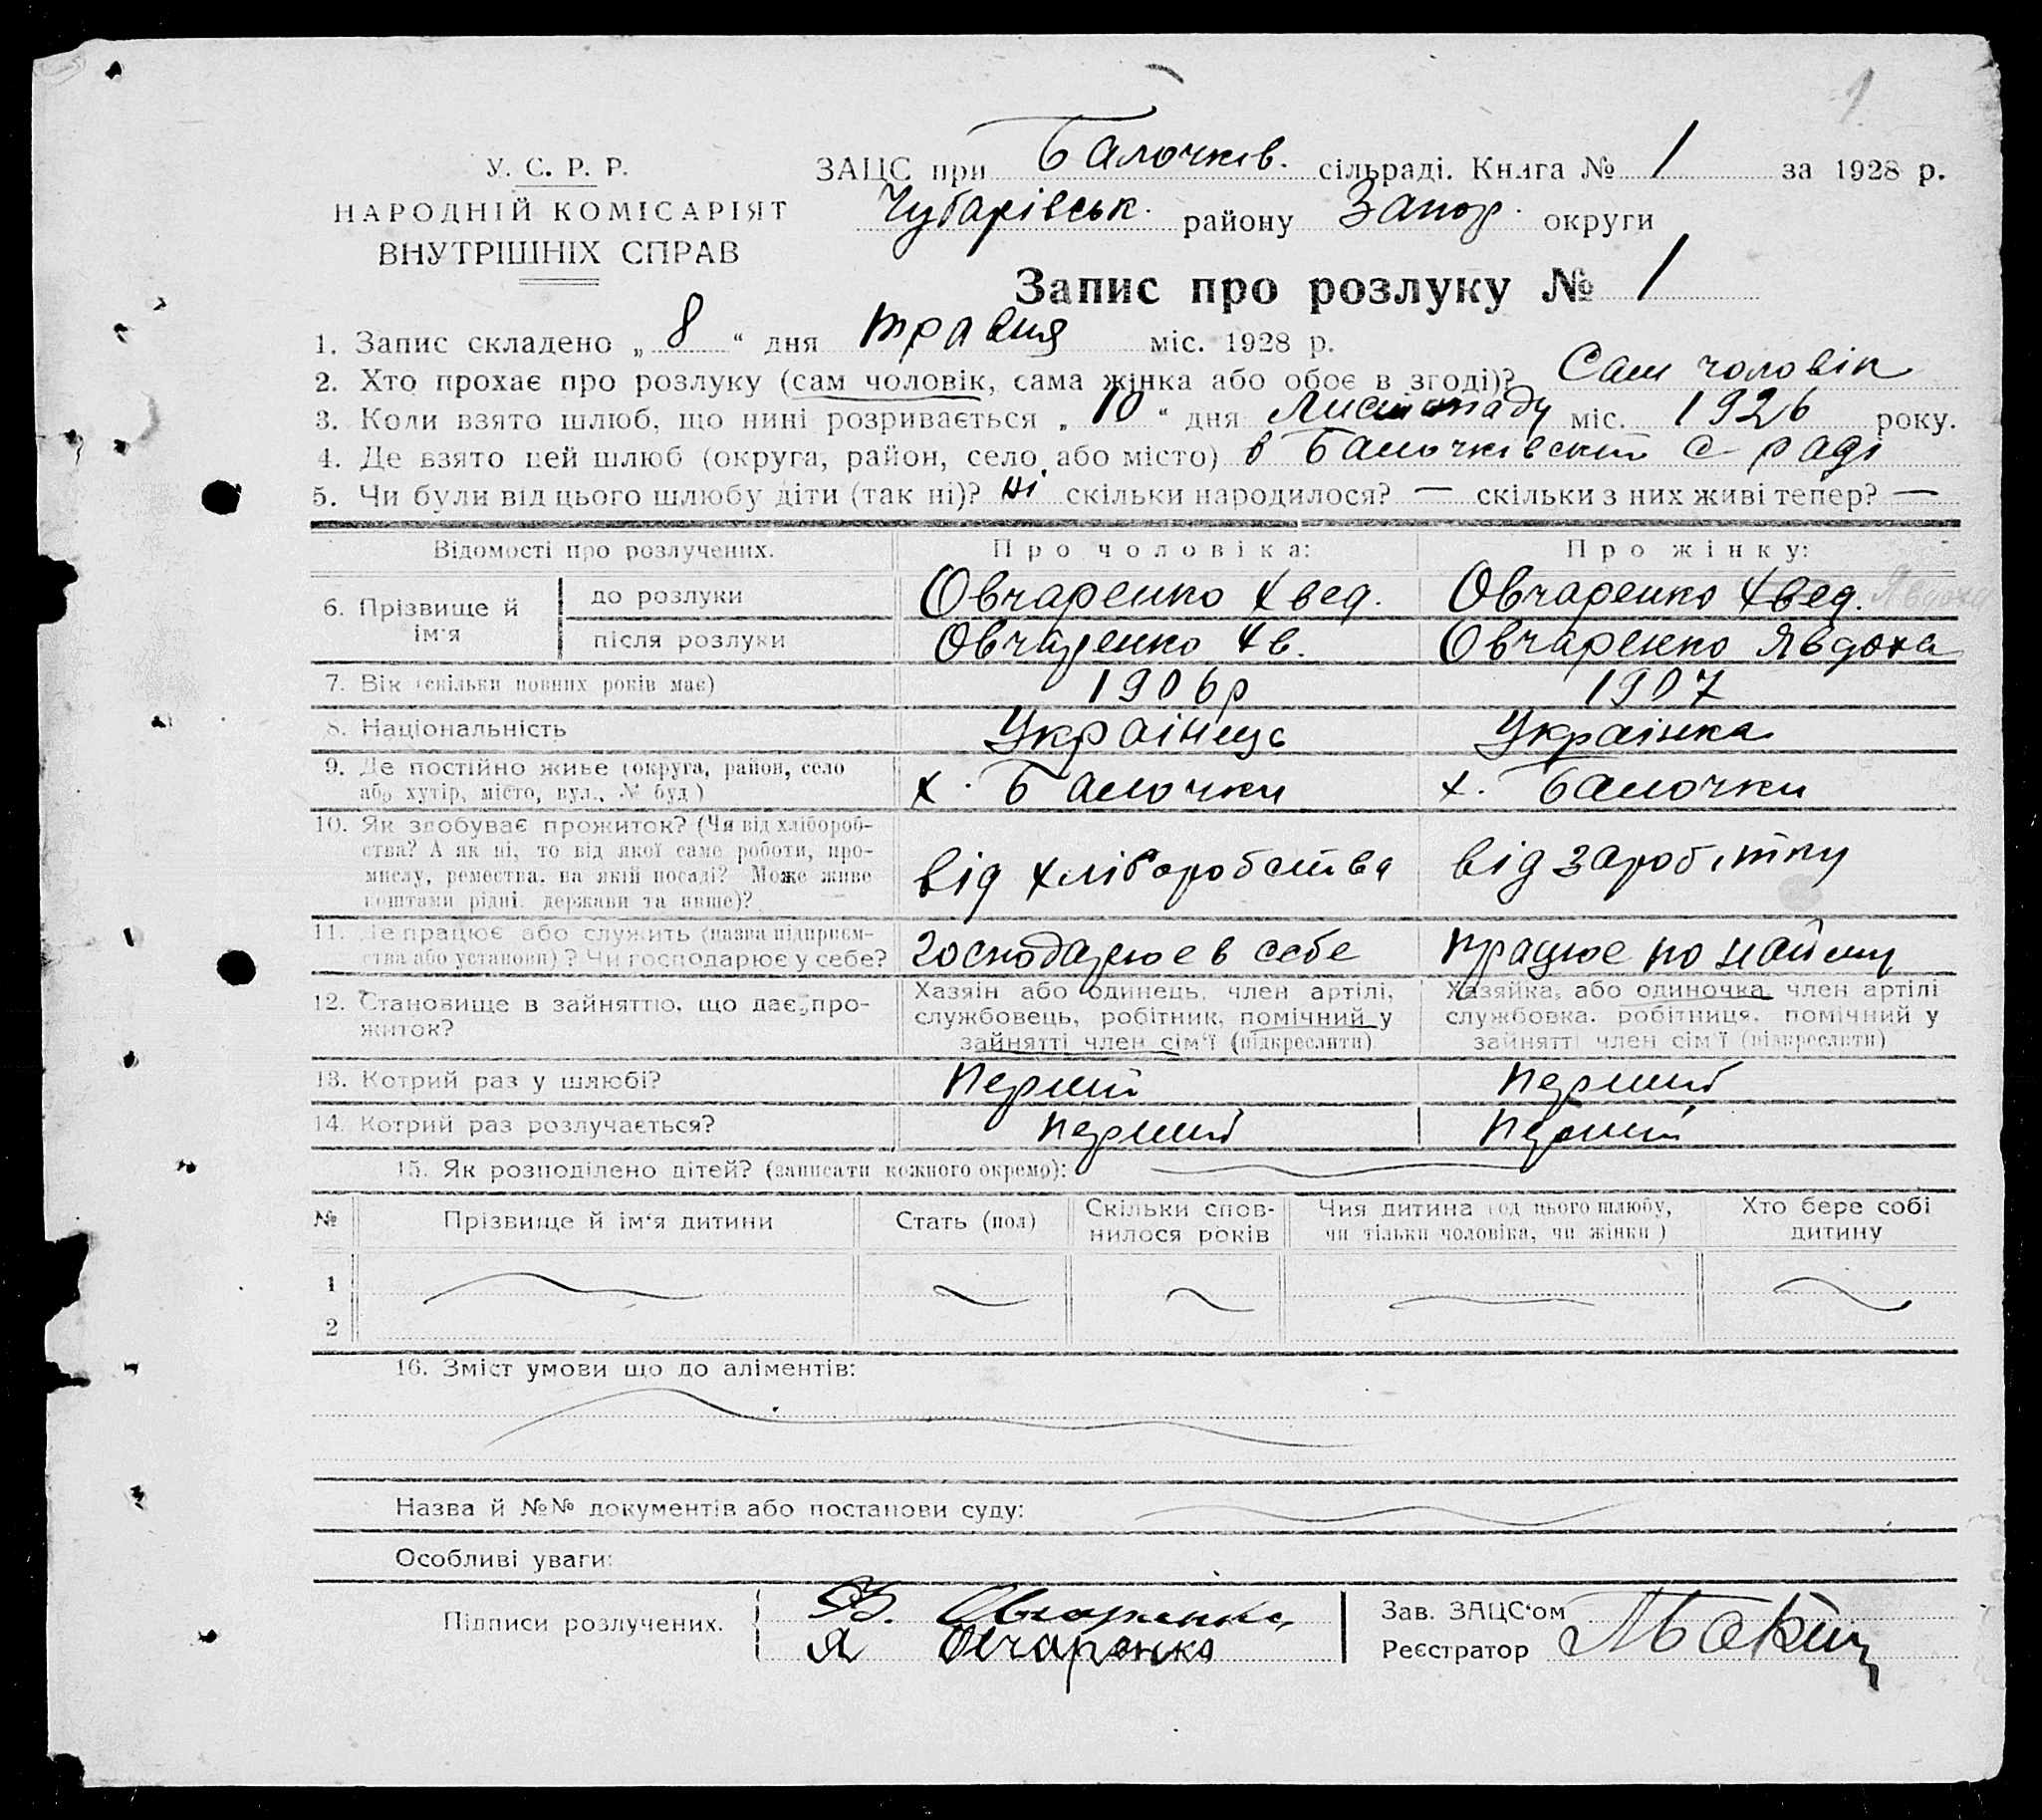 1
У. С. Р. Р.
НАРОДНІЙ КОМІСАРІЯТ
ВНУТРІШНІХ СПРАВ
ЗАЦС при Балочків. сільраді. Книга № 1 за 1928 р.
Чубарівськ. району Запор. округи
Запис про розлуку № 1
1. Запис складено „ 8 “ дня травня міс. 1928 р.
2. Хто прохає про розлуку (сам чоловік, сама жінка або обоє в згоді)? Сам чоловік
3. Коли взято шлюб, що нині розривається „ 10 “ дня Листопаду міс. 1926 року.
4. Де взято цей шлюб (округа, район, село, або місто) в Балочківскій с раді
5. Чи були від цього шлюбу діти (так ні)? ні скільки народилося? — скільки з них живі тепер? —
Відомості про розлучених. Про чоловіка: Про жінку:
6. Прізвище й ім'я
до розлуки Овчаренко Хвед. Овчаренко Хвед. Явдоха
після розлуки Овчаренко Хв. Овчаренко Явдоха
7. Вік (скільки повних років має) 1906р 1907
8. Національність Українець Українка
9. Де постійно живе (округа, район, село
або хутір, місто, вул., № буд) х. Балочки х. Балочки
10. Як здобуває прожиток? (Чи від хлібороб-
ства? А як ні, то від якої саме роботи, про-
мислу, ремества, на якій посаді? Може живе
коштами рідні, держави та инше)? від хліборобства від заробітку
11. Де працює або служить (назва підприєм-
ства або установи)? Чи господарює у себе? господарює в себе працює по найму
12. Становище в зайняттю, що дає про-
житок?
Хазяїн або одинець, член артілі,
службовець, робітник, помічний у
зайнятті член сім'ї (підкреслити)
Хазяйка, або одиночка, член артілі
службовка, робітниця, помічний у
зайнятті член сім'ї (підкреслити)
13. Котрий раз у шлюбі? Перший Перший
14. Котрий раз розлучається? Перший Перший
15. Як розподілено дітей? (записати кожного окремо):
№ Прізвище й ім'я дитини Стать (пол) Скільки спов-
нилося років Чия дитина (од цього шлюбу,
чи тільки чоловіка, чи жінки) Хто бере собі
дитину
1
2
16. Зміст умови що до аліментів:
Назва й №№ документів або постанови суду:
Особливі уваги:
Підписи розлучених. Овчаренко
Я Овчаренко
Зав. ЗАЦС'ом
Реєстратор